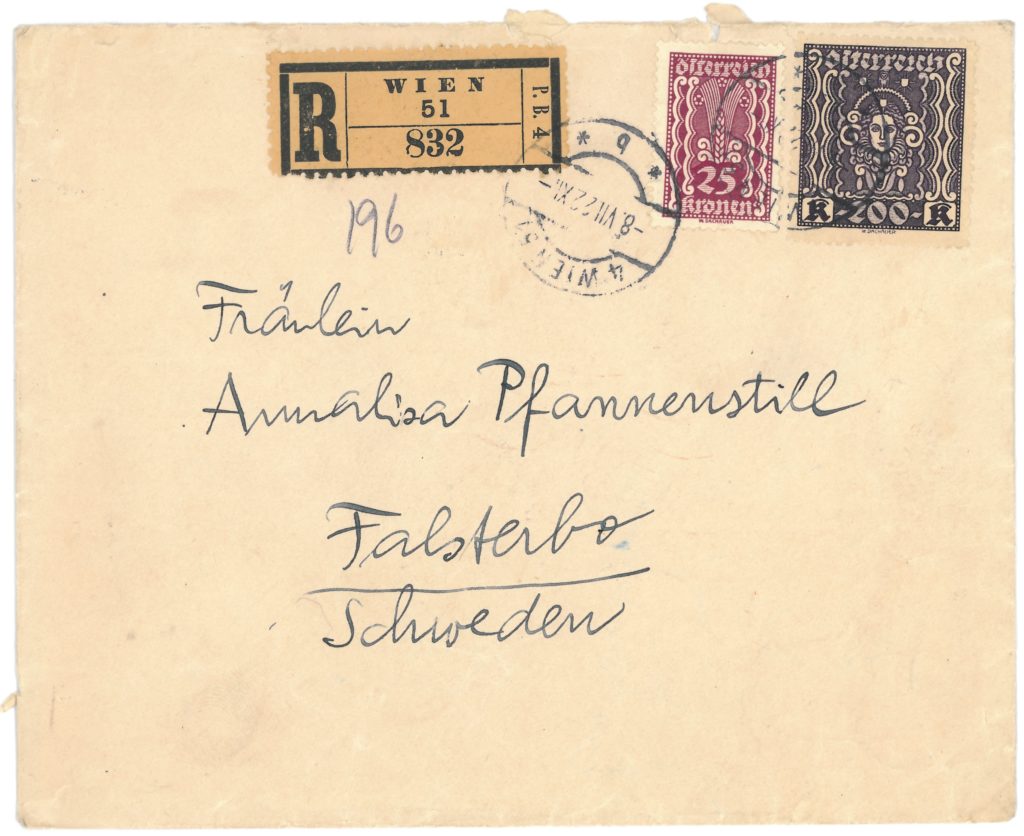 R
WIEN
51
832
P.B. 4
Österreich
25
Kronen
W. DACHAUER
Österreich
K 200- K
W. DACHAUER
4 WIEN 51
-8.VII.22.XI-
* b *
196
Fräulein
Annalisa Pfannenstill
Falsterbo
Schweden